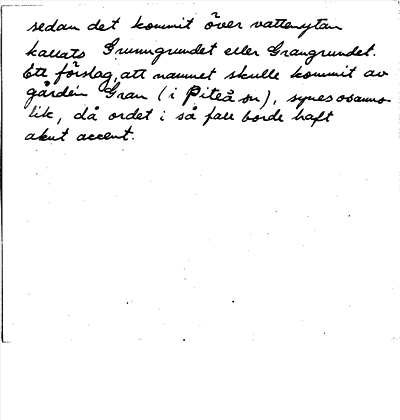 sedan det kommit över vattenytan
kallats Grunngrundet eller Grangrundet.
Ett förslag, att namnet skulle kommit av
gården Gran (i Piteå sn), synes osanno-
lik, då ordet i så fall borde haft
akut accent.